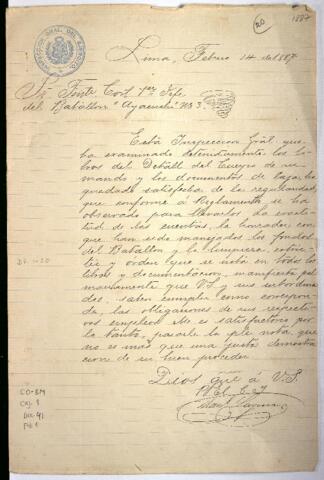 INSPECCION GRAL. DEL EJERCITO
20
1887
Lima, Febrero 14 de 1887
Sr. Tnte Corl. 1er Jefe
del Batallon "Ayacucho" No 3
Esta Inspeccion Gral. que
ha examinado detenidamente los li-
bros del Detall del Cuerpo de su
mando y los documentos de Caja, ha
quedado satisfecha de la regularidad
que conforme á Reglamento, se ha
observado para llevarlos, la exacti-
tud de las cuentas, la honradez con
que han sido manejados los fondos
del Batallon y la
y orden que se nota en todos los
libros y documentacion, manifiesta pal-
mariamente que VS y sus subordina-
dos, saben cumplir como correspon-
de, las obligaciones de sus respecti-
vos empleos. Me es satisfactorio por
lo tanto, pasarle la pte nota, que
no es mas que una justa demostra-
cion de su buen proceder
Dios gue á V.S.
CO-BM
Caj. 1
Doc. 41
Fol. 1